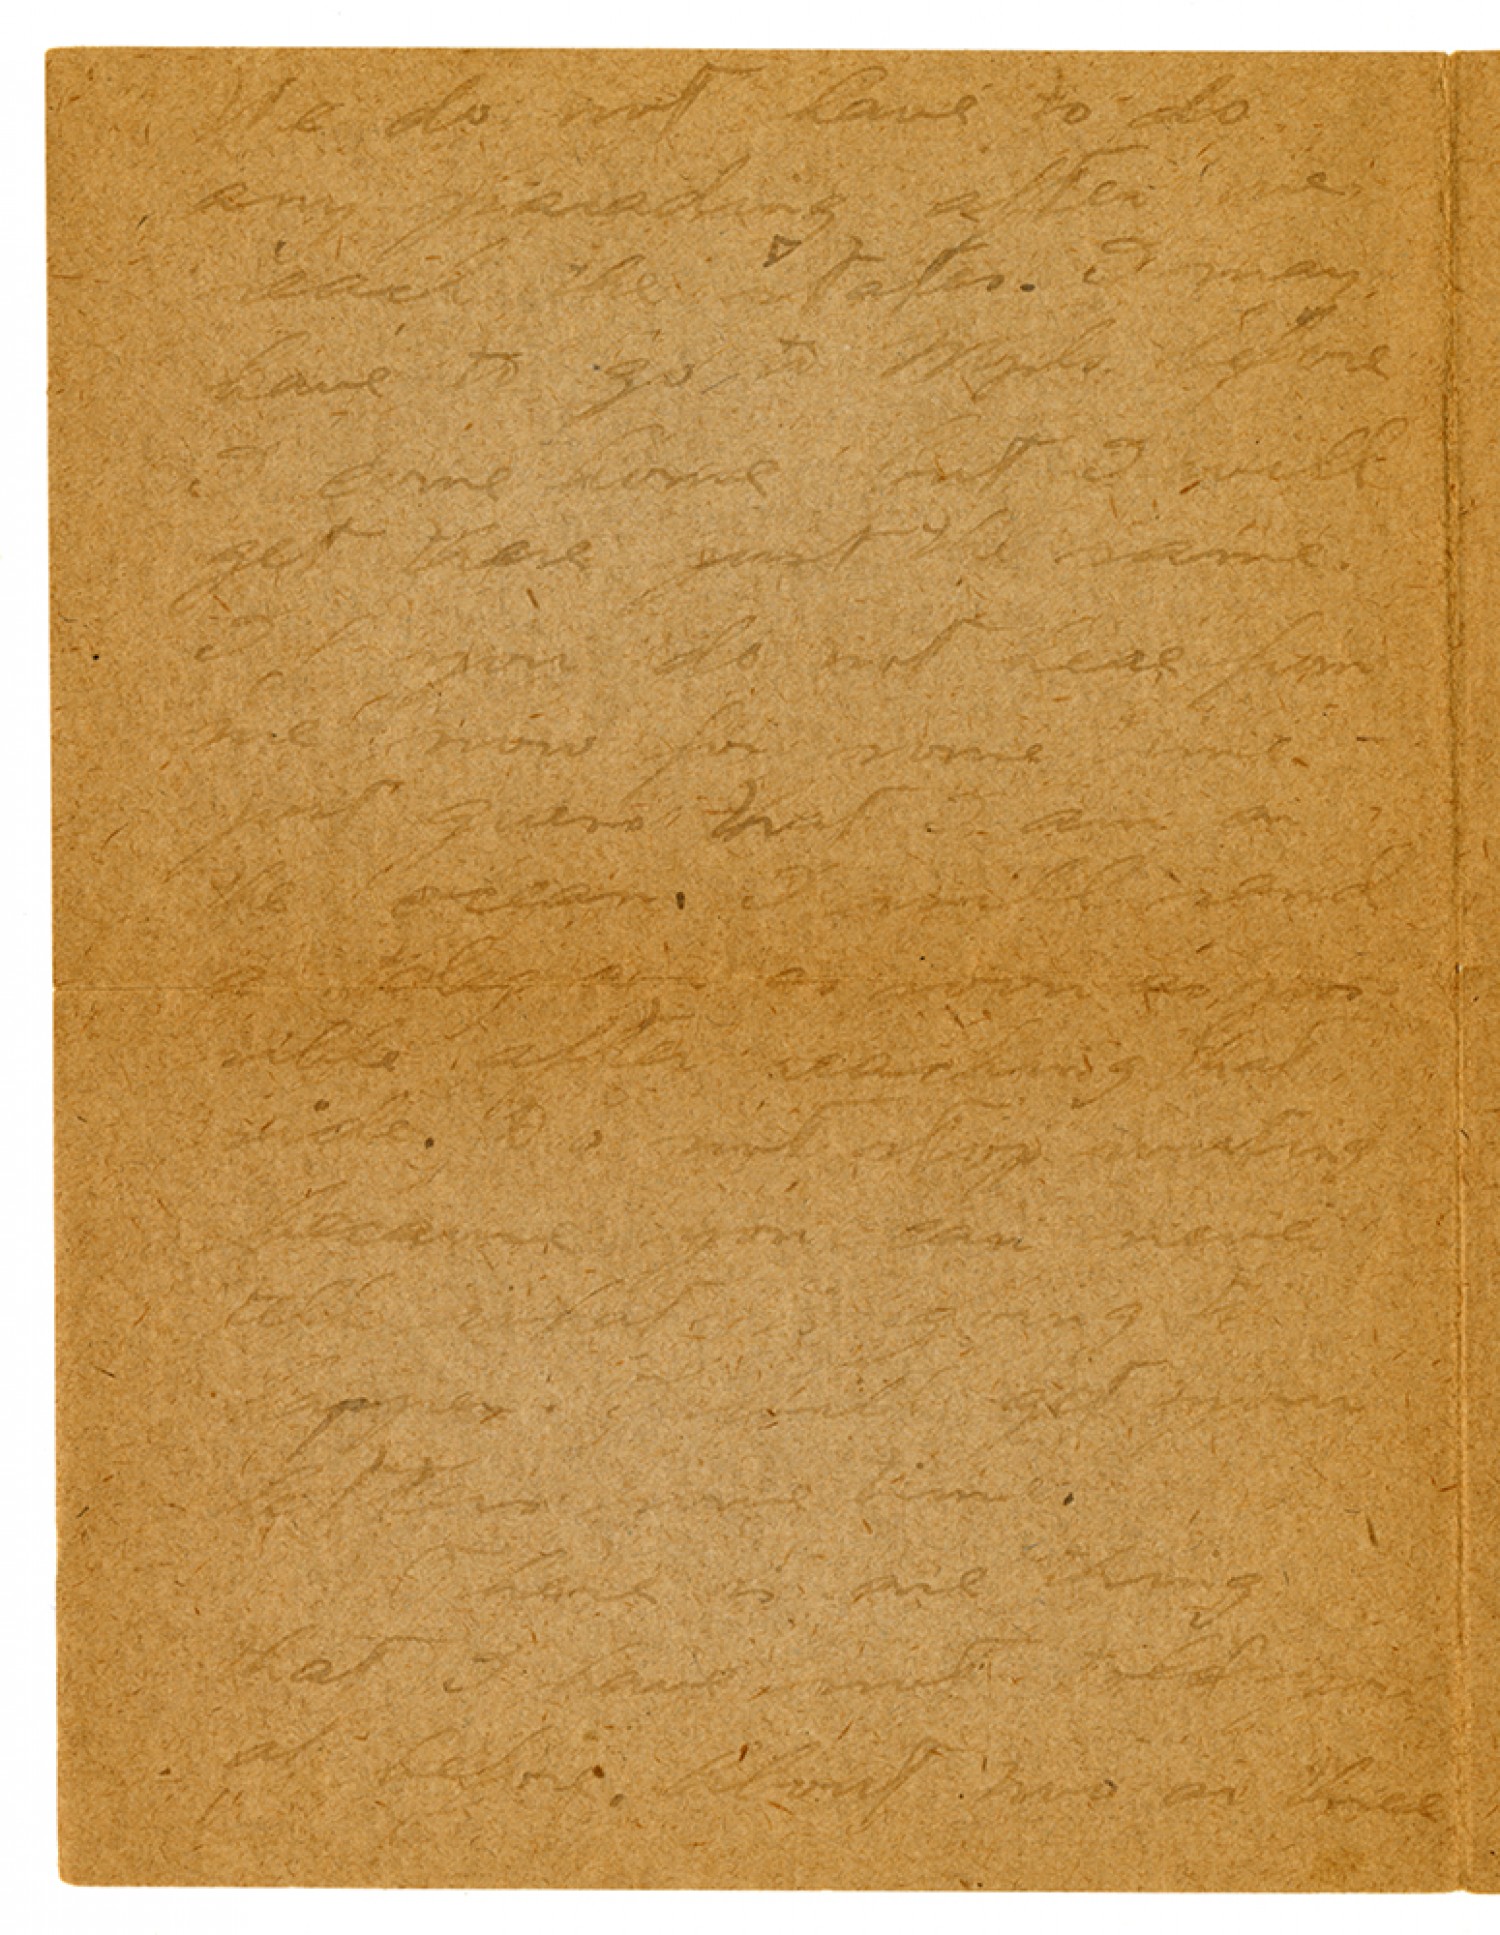 We do not have to do
any parading after we
reach the States. I may
have to go to Mpls. before
I come home but I will
get there just the same.
If you do not hear from
me now for some time
just guess that I am on
the ocean. I will send
a telegram as soon as pos-
sible after reaching that
side. Do not stop writing
because you can never
tell what is going to
get your
letters some time.
There is one thing
that I have not told you
of before. About two or three